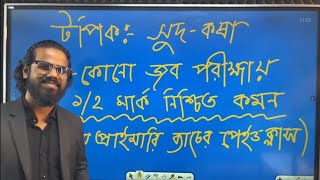 টপিক:- সুদ-কষা
কোনো জব পরীক্ষায়
১/২ মার্ক নিশ্চিত কমন
প্রাইমারি ব্যাচের পেইড ক্লাস)